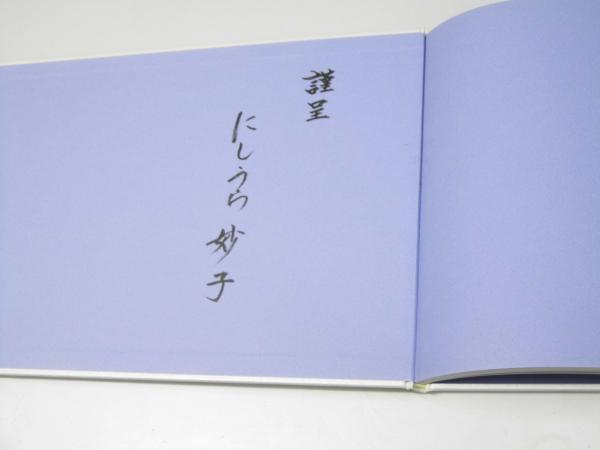 謹呈
にしうら 妙子